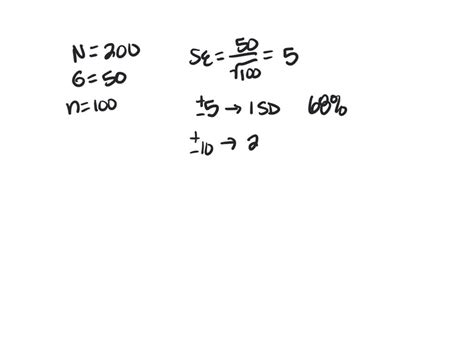 N=200
6=50
n=100
SE = 50/√100 = 5
±5 → 1 SD 68%
±10 → 2